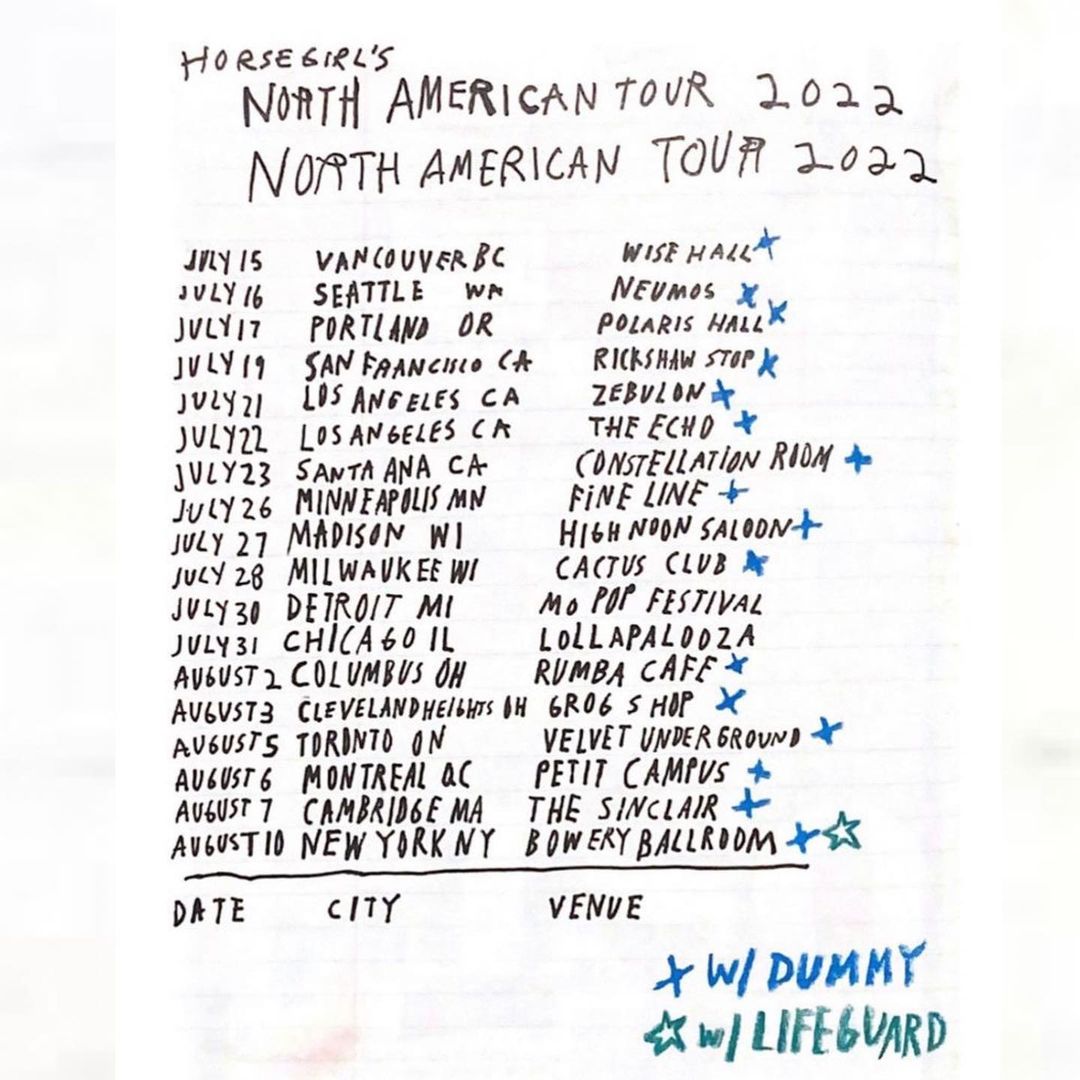 HORSEGIRL'S
NORTH AMERICAN TOUR 2022
NORTH AMERICAN TOUR 2022
JULY 15 VANCOUVER BC WISE HALL
JULY 16 SEATTLE WA NEUMOS
JULY 17 PORTLAND OR POLARIS HALL
JULY 19 SAN FRANCISCO CA RICKSHAW STOP
JULY 21 LOS ANGELES CA ZEBULON
JULY 22 LOS ANGELES CA THE ECHO
JULY 23 SANTA ANA CA CONSTELLATION ROOM
JULY 26 MINNEAPOLIS MN FINE LINE
JULY 27 MADISON WI HIGH NOON SALOON
JULY 28 MILWAUKEE WI CACTUS CLUB
JULY 30 DETROIT MI MO POP FESTIVAL
JULY 31 CHICAGO IL LOLLAPALOOZA
AUGUST 2 COLUMBUS OH RUMBA CAFE
AUGUST 3 CLEVELAND HEIGHTS OH GROG SHOP
AUGUST 5 TORONTO ON VELVET UNDERGROUND
AUGUST 6 MONTREAL QC PETIT CAMPUS
AUGUST 7 CAMBRIDGE MA THE SINCLAIR
AUGUST 10 NEW YORK NY BOWERY BALLROOM
DATE CITY VENUE
W/ DUMMY
W/ LIFEGUARD